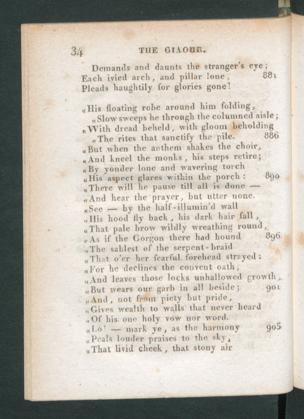 34 THE GIAOUR.
Demands and daunts the stranger's eye;
Each ivied arch, and pillar lone, 881
Pleads haughtily for glories gone!
„His floating robe around him folding,
„Slow sweeps he through the columned aisle;
„With dread beheld, with gloom beholding
„The rites that sanctify the pile. 886
„But when the anthem shakes the choir,
„And kneel the monks, his steps retire;
„By yonder lone and wavering torch
„His aspect glares within the porch: 890
„There will he pause till all is done —
„And hear the prayer, but utter none.
„See — by the half-illumin'd wall
„His hood fly back, his dark hair fall,
„That pale brow wildly wreathing round,
„As if the Gorgon there had bound 896
„The sablest of the serpent-braid
„That o'er her fearful forehead strayed:
„For he declines the convent oath,
„And leaves those locks unhallowed growth,
„But wears our garb in all beside; 901
„And, not from piety but pride,
„Gives wealth to walls that never heard
„Of his one holy vow nor word.
„Lo! — mark ye, as the harmony 905
„Peals louder praises to the sky,
„That livid cheek, that stony air